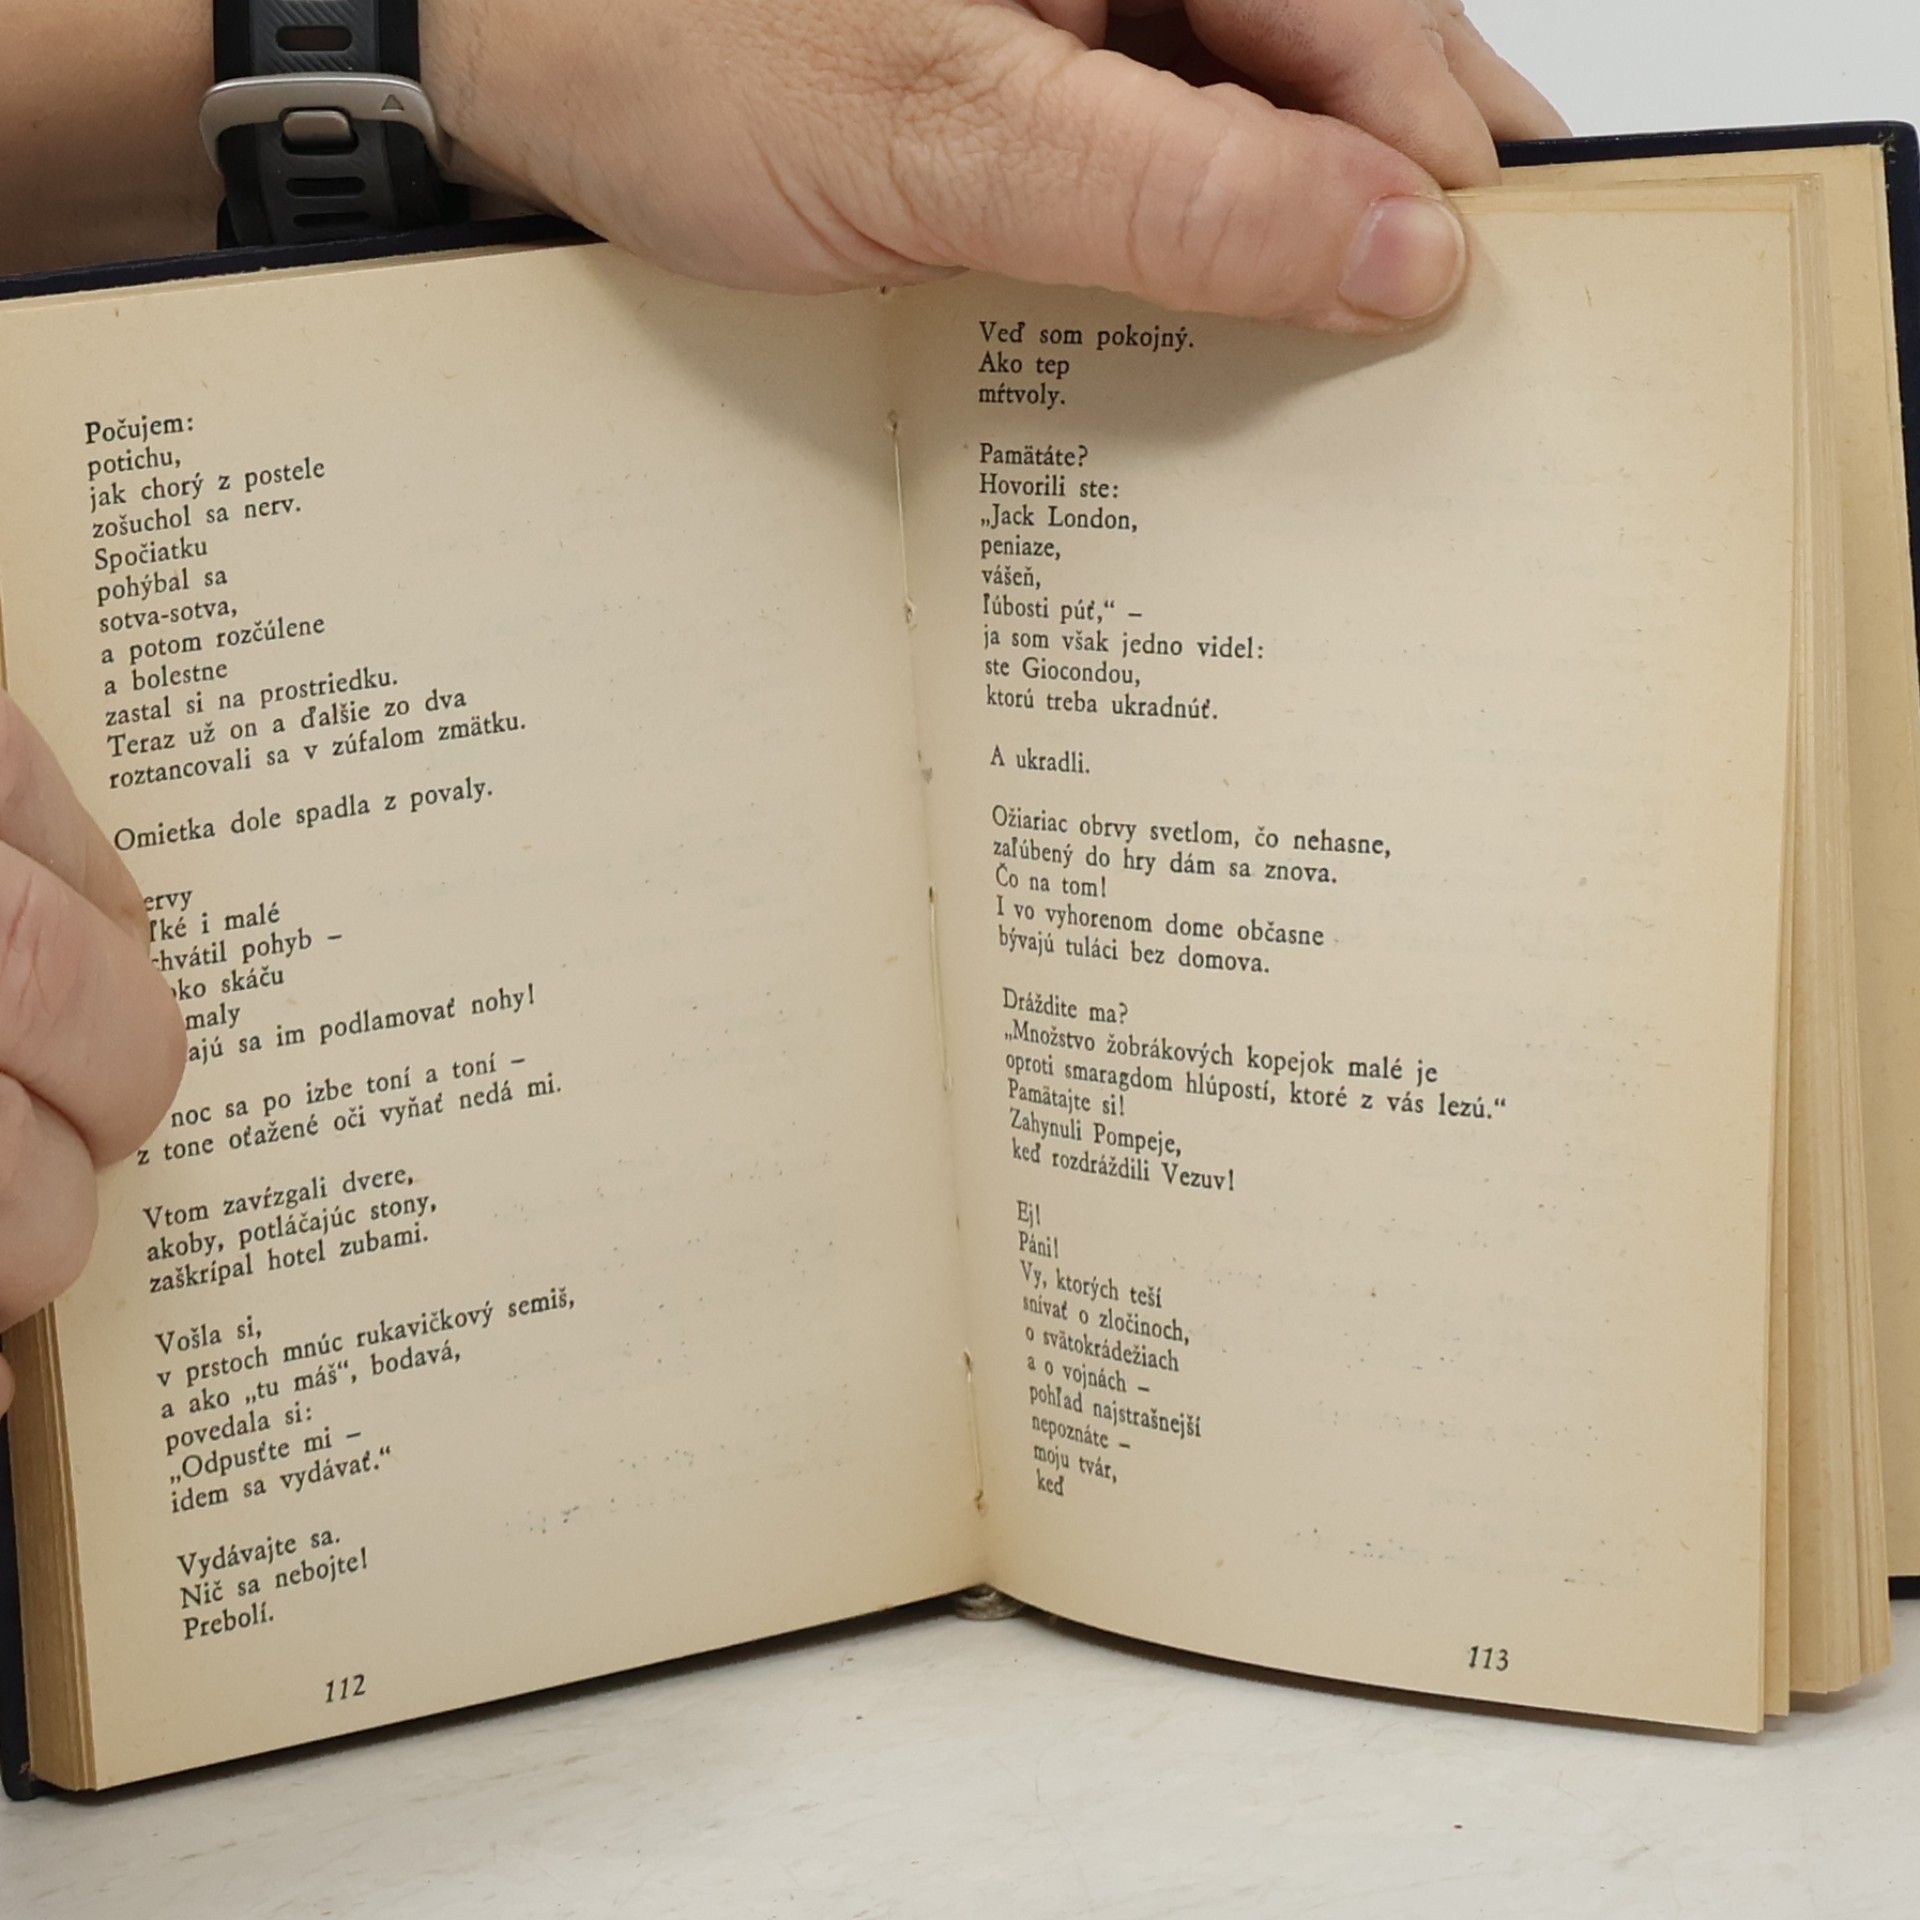 Počujem:
potichu,
jak chorý z postele
zošuchol sa nerv.
Spočiatku
pohýbal sa
sotva-sotva,
a potom rozčúlene
a bolestne
zastal si na prostriedku.
Teraz už on a ďalšie zo dva
roztancovali sa v zúfalom zmätku.
Omietka dole spadla z povaly.
i malé
pohyb –
skáču
sa im podlamovať nohy!
noc sa po izbe toní a toní –
z tone oťažené oči vyňať nedá mi.
Vtom zavŕzgali dvere,
akoby, potláčajúc stony,
zaškrípal hotel zubami.
Vošla si,
v prstoch mnúc rukavičkový semiš,
a ako „tu máš“, bodavá,
povedala si:
„Odpusťte mi –
idem sa vydávať.“
Vydávajte sa.
Nič sa nebojte!
Prebolí.
112
Veď som pokojný.
Ako tep
mŕtvoly.
Pamätáte?
Hovorili ste:
„Jack London,
peniaze,
vášeň,
ľúbosti púť,“ –
ja som však jedno videl:
ste Giocondou,
ktorú treba ukradnúť.
A ukradli.
Ožiariac obrvy svetlom, čo nehasne,
zaľúbený do hry dám sa znova.
Čo na tom!
I vo vyhorenom dome občasne
bývajú tuláci bez domova.
Dráždite ma?
„Množstvo žobrákových kopejok malé je
oproti smaragdom hlúpostí, ktoré z vás lezú.“
Pamätajte si!
Zahynuli Pompeje,
keď rozdráždili Vezuv!
Ej!
Páni!
Vy, ktorých teší
snívať o zločinoch,
o svätokrádežiach
a o vojnách –
pohľad najstrašnejší
nepoznáte –
moju tvár,
keď
113